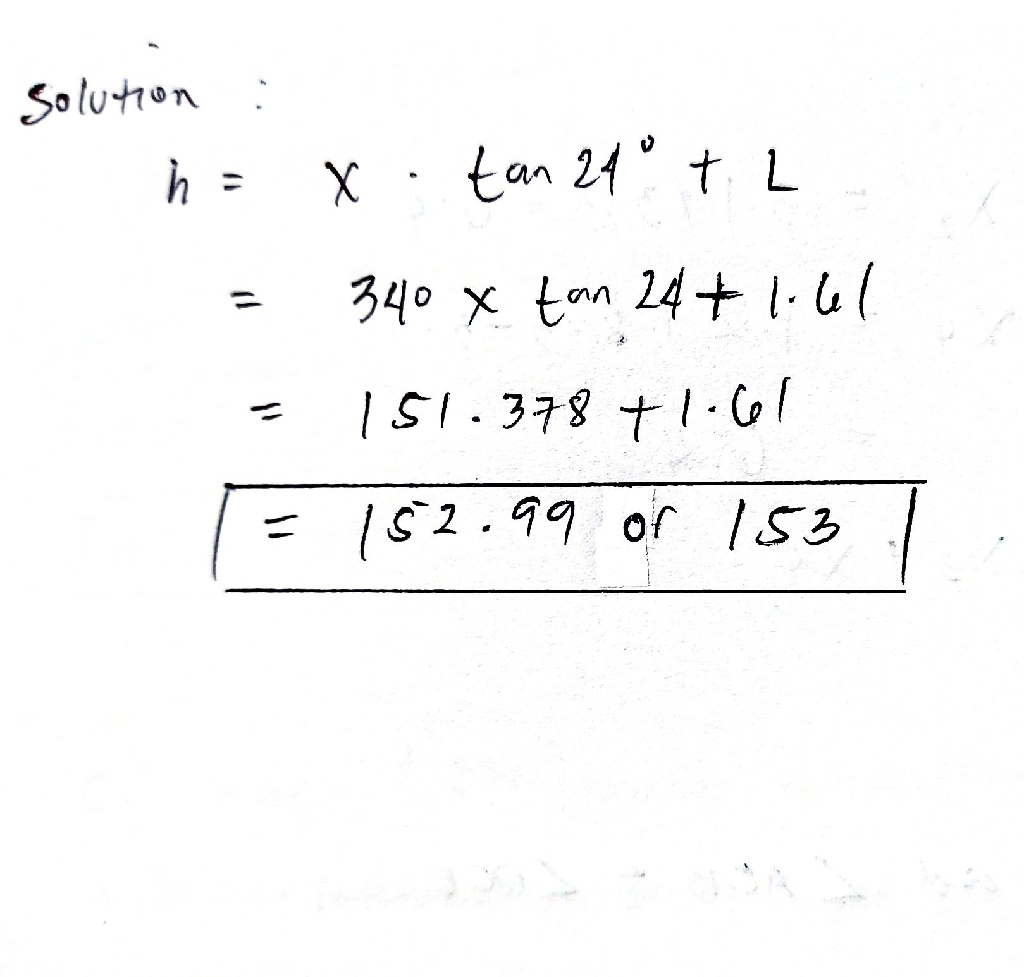 Solution :
h = x . tan 24° + L
= 340 x tan 24 + 1.61
= 151.378 + 1.61
= 152.99 or 153